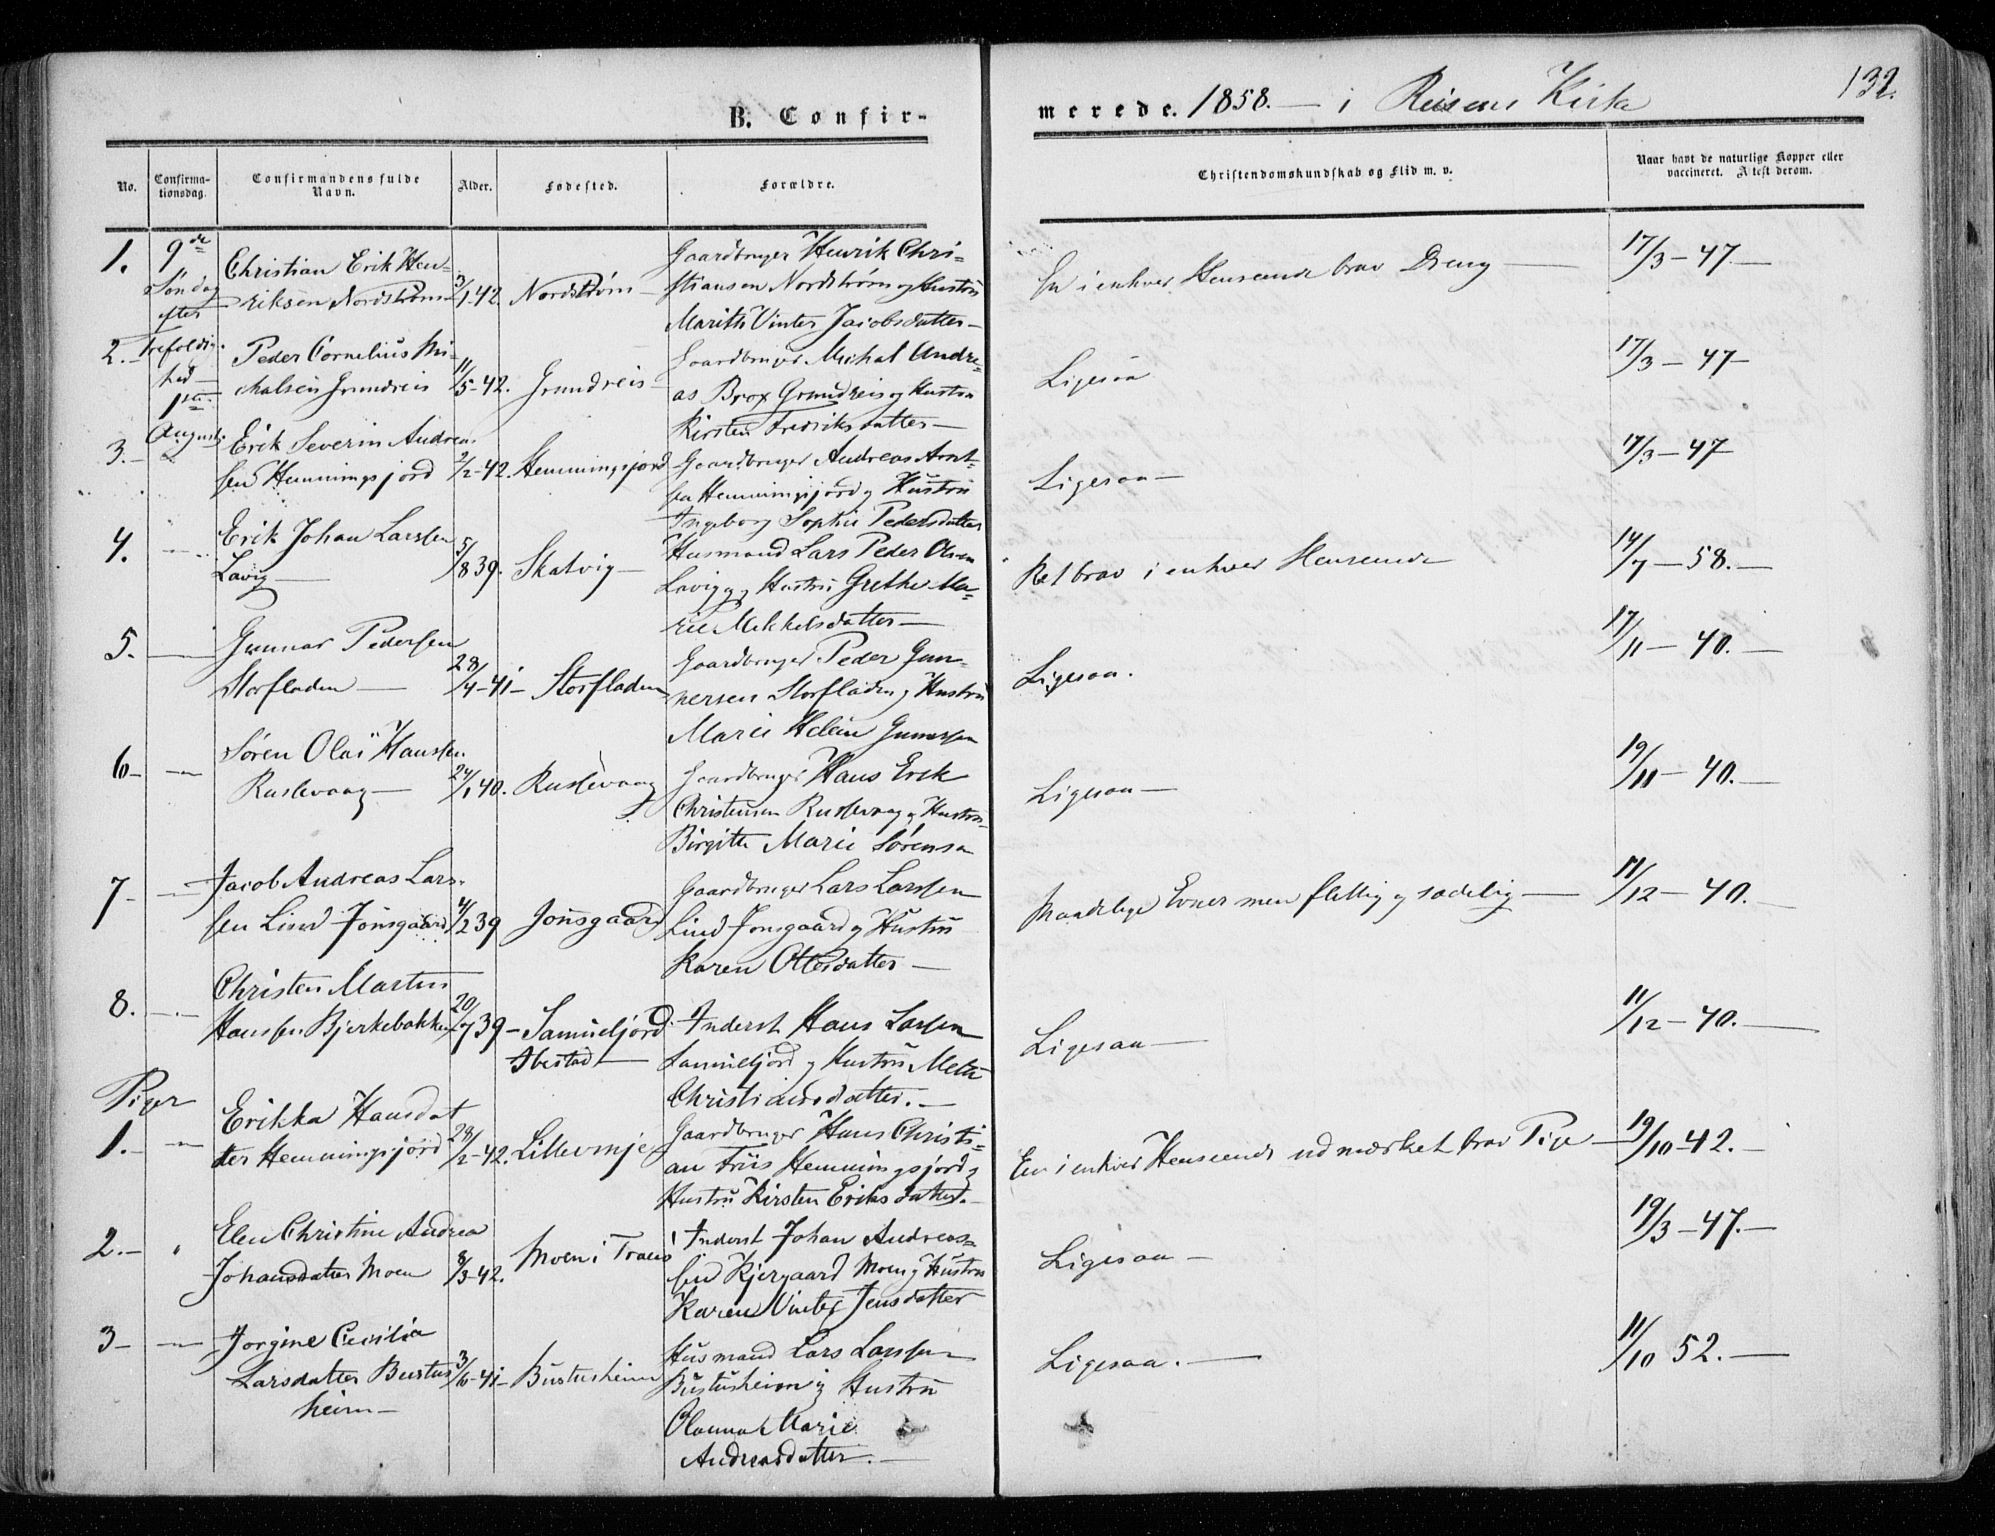 B. Confir-
merede. 1858. — i Reisens Kirke
132.
No.
Confirma-
tionsdag.
Confirmandens fulde
Navn.
Alder.
Fødested.
Forældre.
Christendomskundskab og Flid m. v.
Naar havt de naturlige Kopper eller
vaccineret. Atest derom.
1.
9de
Søndag
efter
Trefoldig-
hed
1ste
August.
Christian Erik Hen-
riksen Nordstrøm
3/1-42
Nordstrøm
Gaardbruger Henrik Chri-
stiansen Nordstrøm og Hustru
Marith Vinter Jacobsdatter —
En i enhver Henseende brav Dreng —
17/3-47 —
2. —
Peder Cornelius Mi-
chalsen Grundreis
11/5-42.
Grundreis
Gaardbruger Michal Andre-
as Brox Grundreis og Hustru
Kirsten Fredriksdatter —
Ligesaa
17/3-47 —
3. —
Erik Severin Andrea-
sen Hemmingsjord
2/2-42.
Hemmingsjord
Gaardbruger Andreas Arnt-
sen Hemmingsjord og Hustru
Ingeborg Sophie Pedersdatter
Ligesaa —
17/3-47
4. —
Erik Johan Larssen
Lavig —
5/8 39.
Skatvig —
Husmand Lars Peder Olsen
Lavig og Hustru Grethe Ma-
rie Mikkelsdatter —
Ret brav i enhver Henseende
14/7-58. —
5. —
Gunnar Pedersen
Storfladen —
28/4-41 —
Storfladen
Gaardbruger Peder Gun-
nersen Storfladen og Hustru
Marie Helene
Ligesaa.
17/11-40. —
6 —
Søren Olai Hanssen
Ruslevaag —
24/1 40.
Ruslevaag
Gaardbruger Hans Erik
Christensen Ruslevaag og Hustru
Birgitte Marie Sørensen
Ligesaa —
19/11-40. —
7 —
Jacob Andreas Lars-
sen Lind Jonsgaard
4/2 39
Jonsgaard
Gaardbruger Lars Larssen
Lind Jonsgaard og Hustru
Karen Ottesdatter —
Maadelige Evner men flittig og sædelig —
11/12-40. —
8. —
Christen Martin
Hanssen Bjerkebakken
20/7 39 —
Samueljord
Ibestad —
Inderst Hans Larsen
Samueljord og Hustru Mette
Christiansdatter. —
Ligesaa —
11/12-40. —
Piger
1. —
Erikka Hansdat
ter Hemmingsjord
28/2-42.
Gaardbruger Hans Christi-
an Friis Hemmingsjord og
Hustru Kirsten Eriksdatter —
En i enhver Henseende udmærket brav Pige —
19/10-42. —
2. —
Elen Christine Andrea
Johansdatter Moen
8/3-42.
Moen i
Inderst Johan Andreas-
sen Kjergaard Moen og Hustru
Karen Vinter Jensdatter
Ligesaa —
19/3-47. —
3 —
Jorgine Cecilia
Larsdatter Bustus
heim —
3/6-41 —
Bustusheim
Husmand Lars Larssen
Bustusheim og Hustru
Marie
Andreasdatter. —
Ligesaa. —
11/10 52. —